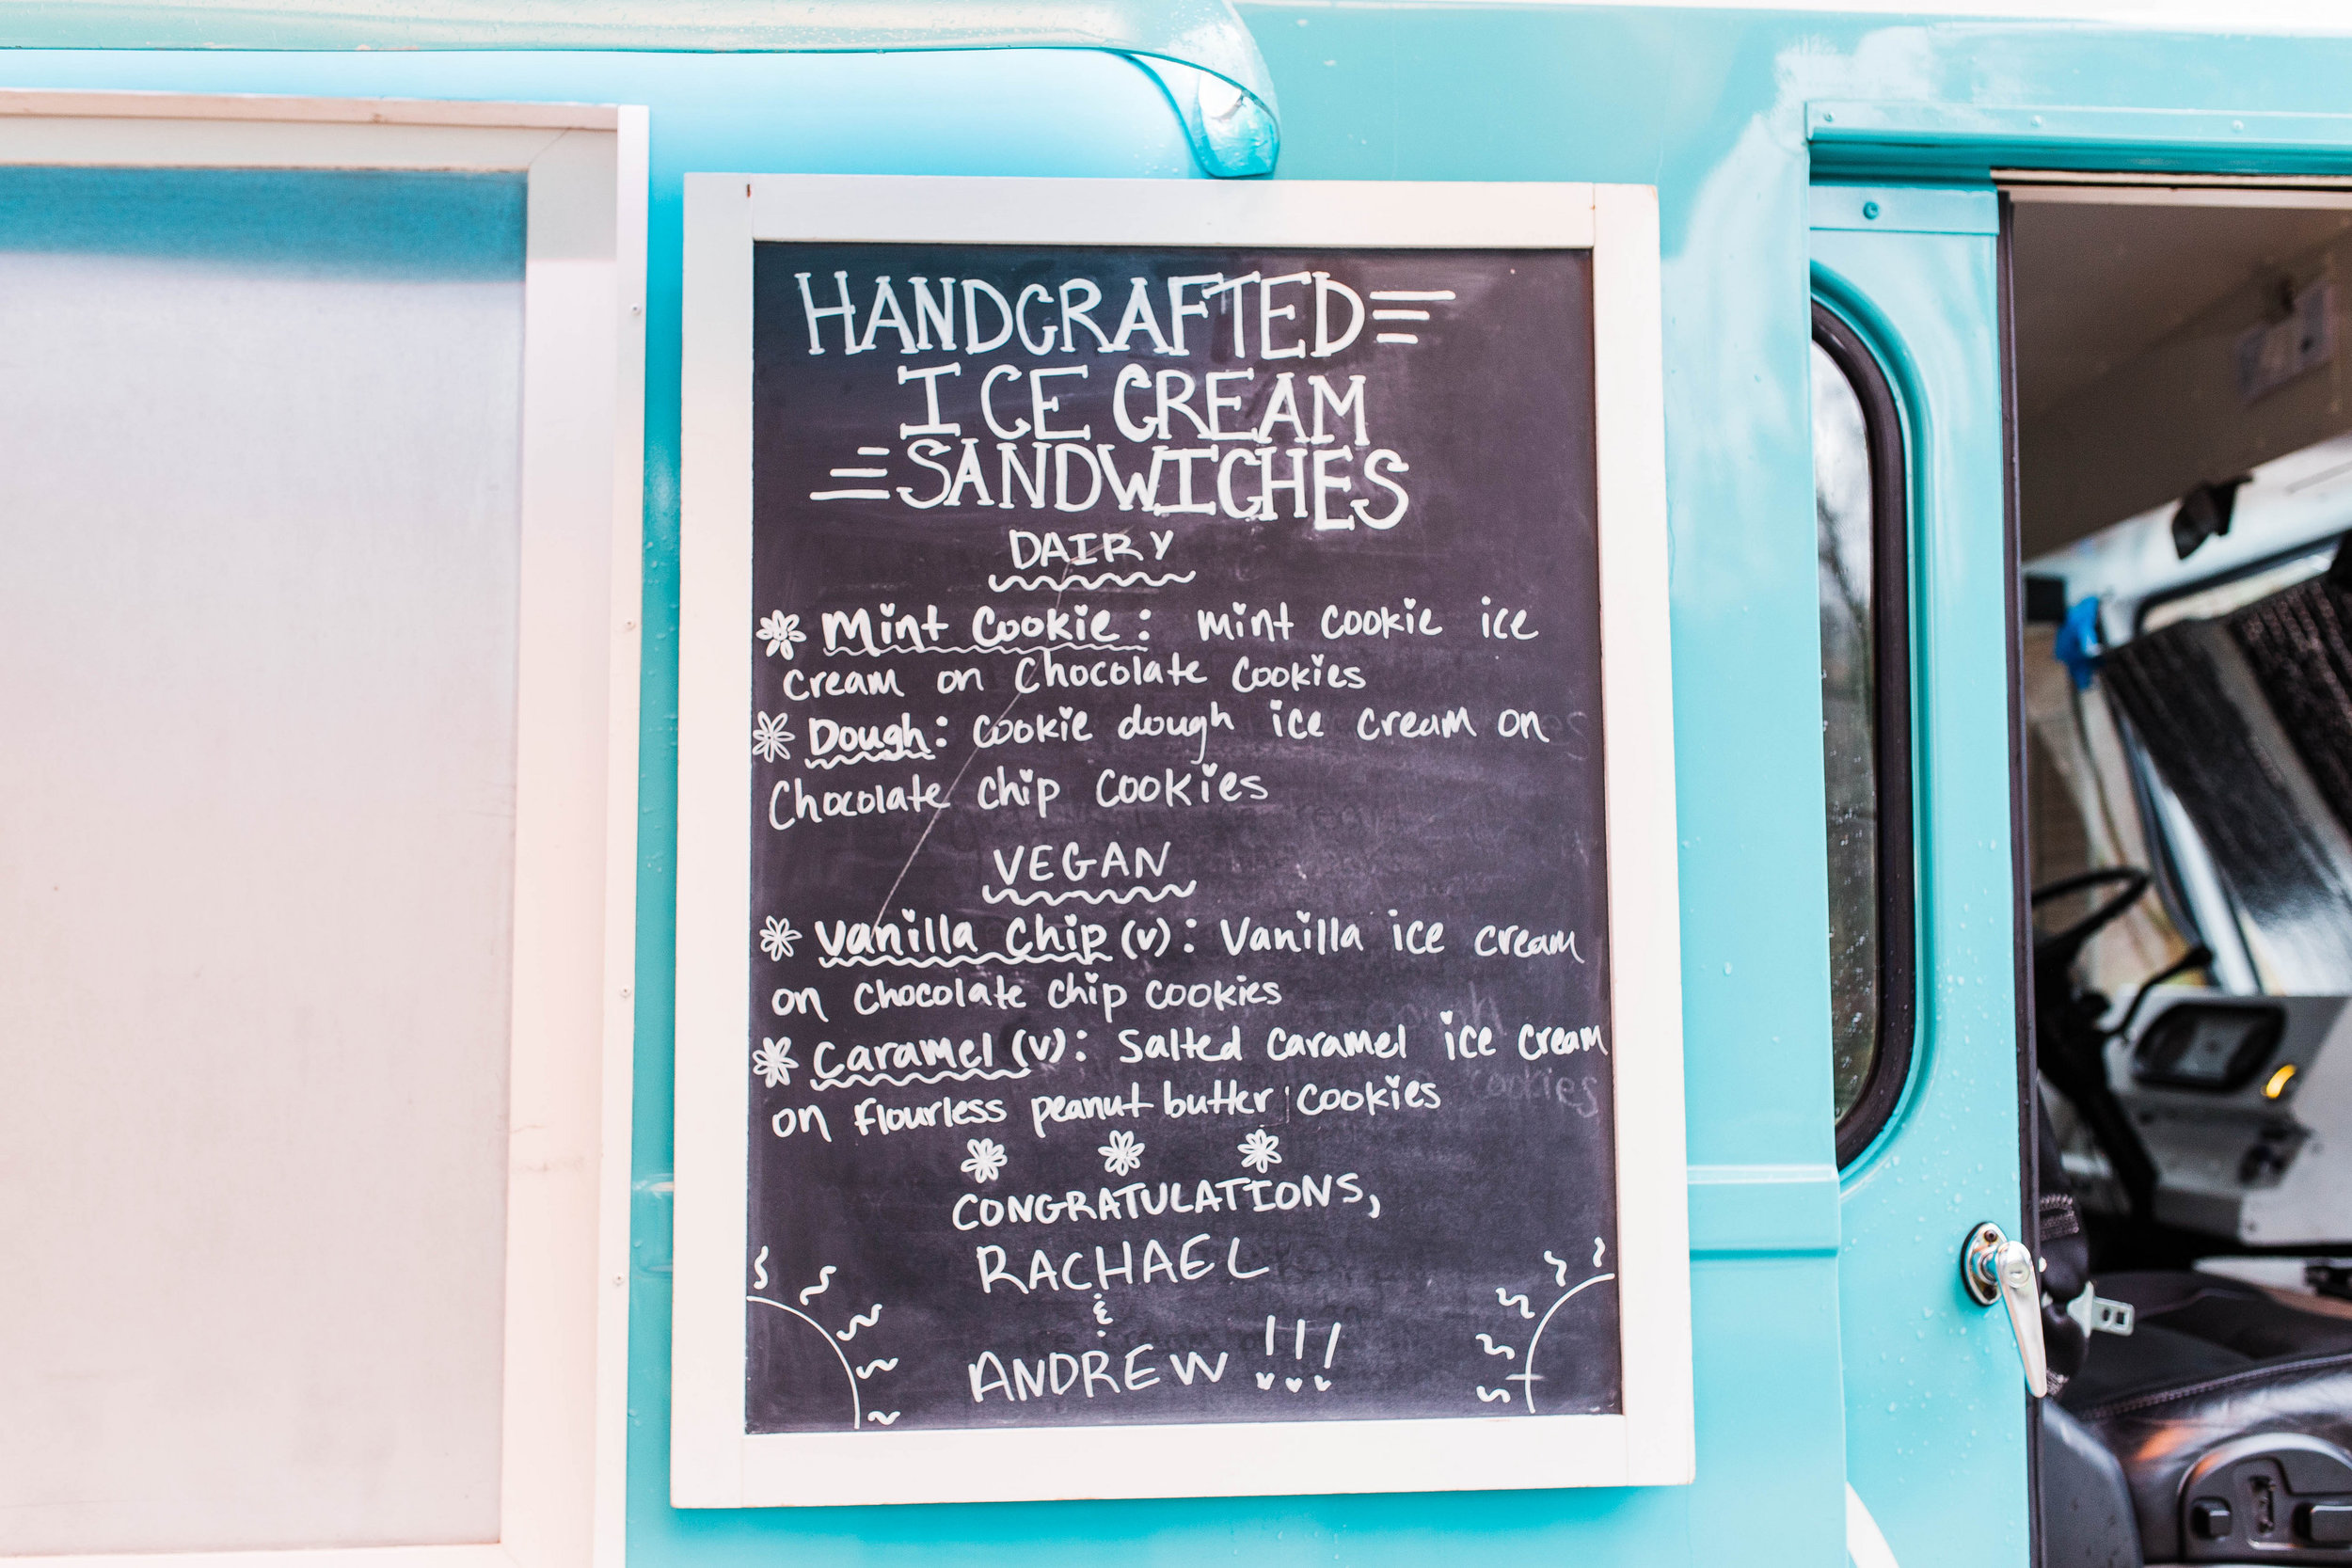 HANDCRAFTED
ICE CREAM
SANDWICHES
DAIRY
Mint Cookie: Mint Cookie ice
Cream on Chocolate Cookies
Dough: Cookie dough ice cream on
Chocolate chip Cookies
VEGAN
Vanilla Chip (v): Vanilla ice cream
on Chocolate chip cookies
Caramel (v): Salted Caramel ice cream
on flourless peanut butter cookies
CONGRATULATIONS,
RACHAEL
&
ANDREW !!!